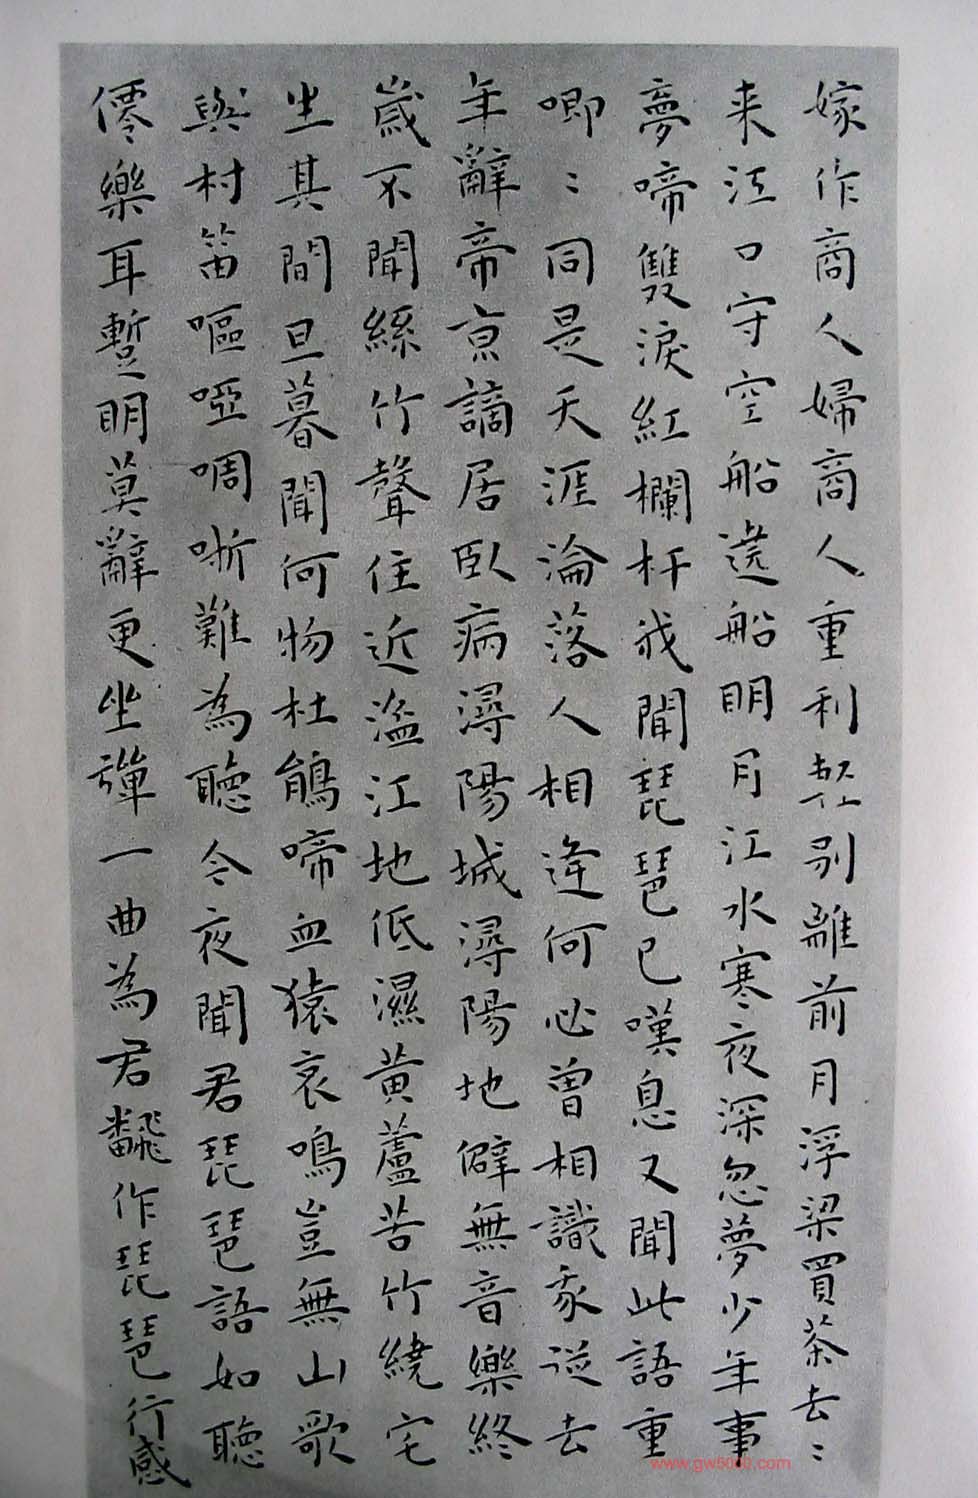 嫁作商人婦商人重利輕别離前月浮梁買茶去〻
来江口守空船遶船明月江水寒夜深忽夢少年事
夢啼雙淚紅欄杆我聞琵琶已嘆息又聞此語重
唧〻同是天涯淪落人相逢何必曾相識我從去
年辭帝京謫居臥病潯陽城潯陽地僻無音樂終
歲不聞絲竹聲住近湓江地低濕黄蘆苦竹繞宅
生其間旦暮聞何物杜鵑啼血猿哀鳴豈無山歌
與村笛嘔啞啁哳難為聽今夜聞君琵琶語如聽
僊樂耳暫明莫辭更坐彈一曲為君飜作琵琶行感
www.gw5000.com